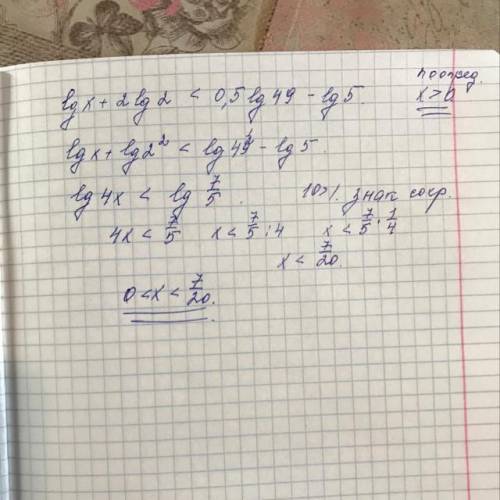 lg x + 2 lg 2 < 0,5 lg 49 - lg 5. по опред. x > 0
lg x + lg 2² < lg 49^½ - lg 5.
lg 4x < lg 7/5. 10 > 1. знак сохр.
4x < 7/5 x < 7/5 : 4 x < 7/5 · 1/4
x < 7/20.
0 < x < 7/20.